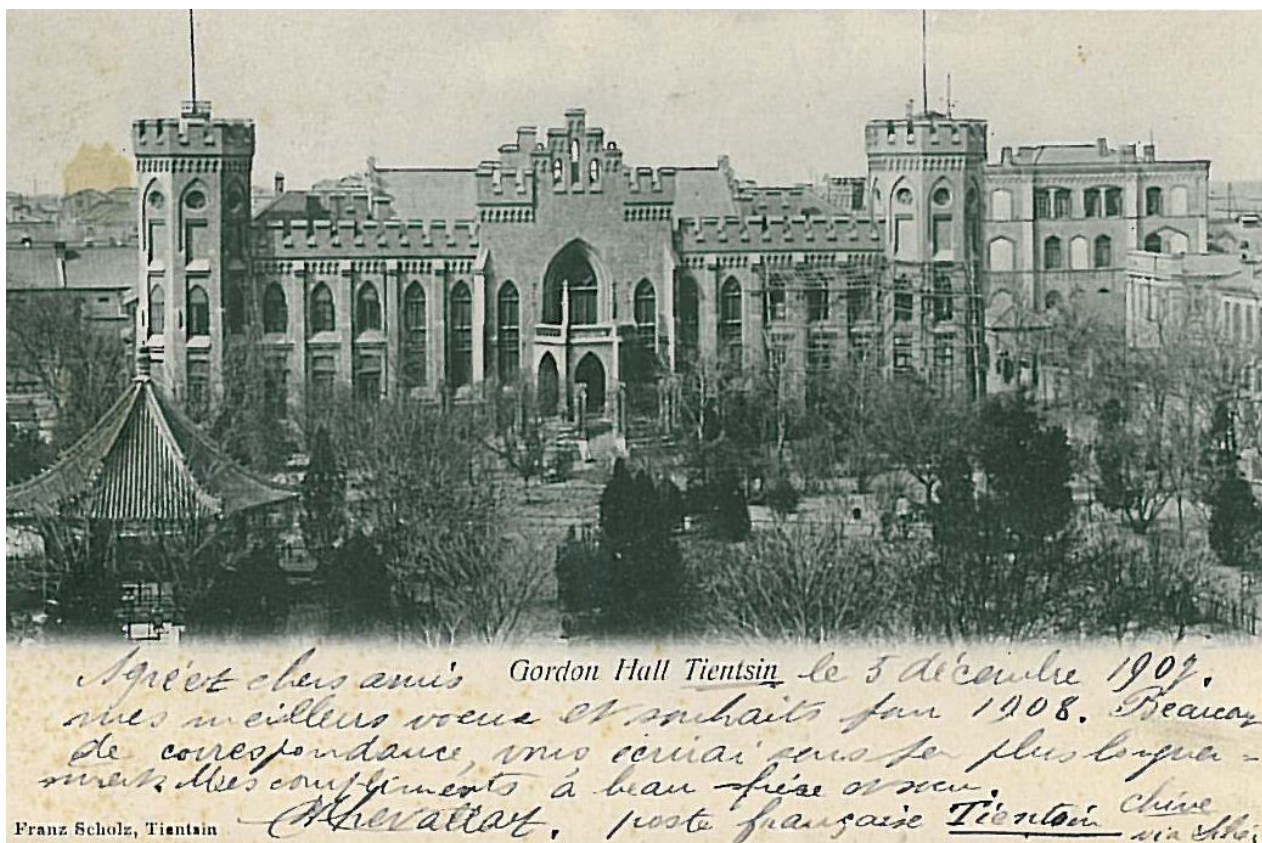 Agréez chers amis Gordon Hall Tientsin le 5 décembre 1907.
mes meilleurs voeux et souhaits pour 1908. Beaucoup
de correspondance, vous écrirai sous peu plus longue=
ment. Mes compliments à beau frère et soeur.
poste française Tientsin chine
Franz Scholz, Tientsin via